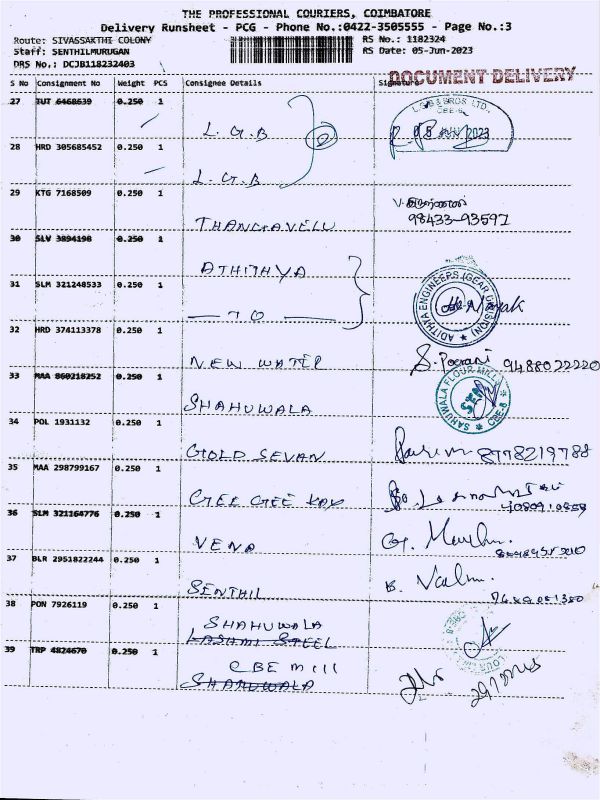 THE PROFESSIONAL COURIERS, COIMBATORE
Delivery Runsheet - PCG - Phone No.:0422-3505555 - Page No.:3
Route: SIVASSAKTHI COLONY RS No.: 1182324
Staff: SENTHILMURUGAN RS Date: 05-Jun-2023
DRS No.: DCJB118232403
DOCUMENT DELIVERY
S No Consignment No Weight PCS Consignee Details Signature
27 TUT 6468639 0.250 1 L.G.B
L.G.B & BROS LTD.,
CBE-6
05 JUN 2023
28 HRD 305685452 0.250 1 L.G.B
29 KTG 7168509 0.250 1 THANGAVELU
98433-93597
30 SLV 3894198 0.250 1 ATHITHYA
31 SLM 321248533 0.250 1 — TO —
ADITHYA ENGINEERS (GEAR DIVISION)
32 HRD 374113378 0.250 1 NEW WATER
9488022220
33 MAA 860218252 0.250 1 SHAHUWALA
SAHUWALA FLOUR MILLS
CBE-6
34 POL 1931132 0.250 1 GOLD SEVAN
8778219788
35 MAA 298799167 0.250 1 GEE GEE KAY
36 SLM 321164776 0.250 1 VENA
37 BLR 2951822244 0.250 1 SENTHIL
38 PON 7926119 0.250 1 SHAHUWALA
LASHMI STEEL
39 TRP 4824670 0.250 1 CBE mill
SHAHUWALA